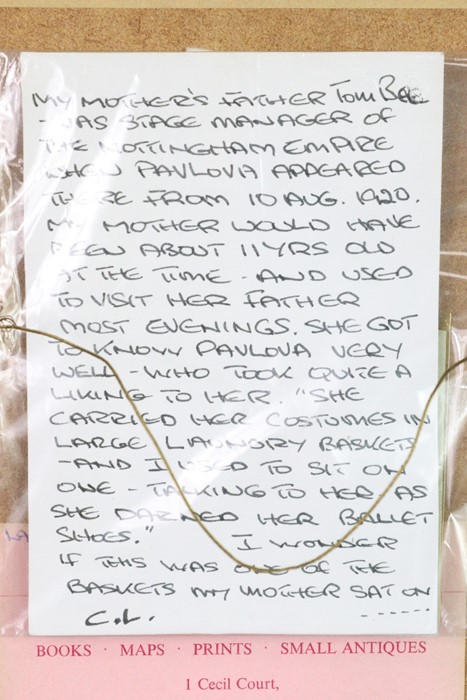 MY MOTHER'S FATHER TOM BEE
- WAS STAGE MANAGER OF
THE NOTTINGHAM EMPIRE
WHEN PAVLOVA APPEARED
THERE FROM 10 AUG. 1920.
MY MOTHER WOULD HAVE
BEEN ABOUT 11 YRS OLD
AT THE TIME - AND USED
TO VISIT HER FATHER
MOST EVENINGS. SHE GOT
TO KNOW PAVLOVA VERY
WELL - WHO TOOK QUITE A
LIKING TO HER. "SHE
CARRIED HER COSTUMES IN
LARGE LAUNDRY BASKETS
- AND I USED TO SIT ON
ONE - TALKING TO HER AS
SHE DARNED HER BALLET
SHOES." I WONDER
IF THIS WAS ONE OF THE
BASKETS MY MOTHER SAT ON
C.L. ------
BOOKS · MAPS · PRINTS · SMALL ANTIQUES
1 Cecil Court,